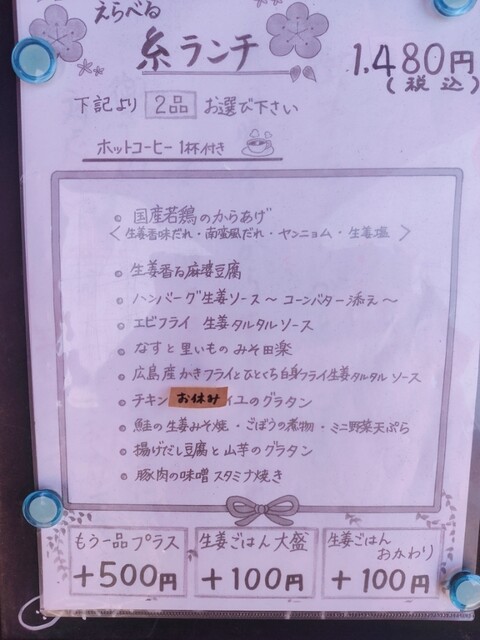 えらべる
糸ランチ
1.480円
(税込)
下記より 2品 お選び下さい
ホットコーヒー1杯付き
国産若鶏のからあげ
〈生姜香味だれ・南蛮風だれ・ヤンニョム・生姜塩〉
生姜香る麻婆豆腐
ハンバーグ生姜ソース～コーンバター添え～
エビフライ 生姜タルタルソース
なすと里いものみそ田楽
広島産かきフライとひとくち白身フライ生姜タルタルソース
チキン お休み イユのグラタン
鮭の生姜みそ焼・ごぼうの煮物・ミニ野菜天ぷら
揚げだし豆腐と山芋のグラタン
豚肉の味噌スタミナ焼き
もう一品プラス
+500円
生姜ごはん大盛
+100円
生姜ごはん
おかわり
+100円